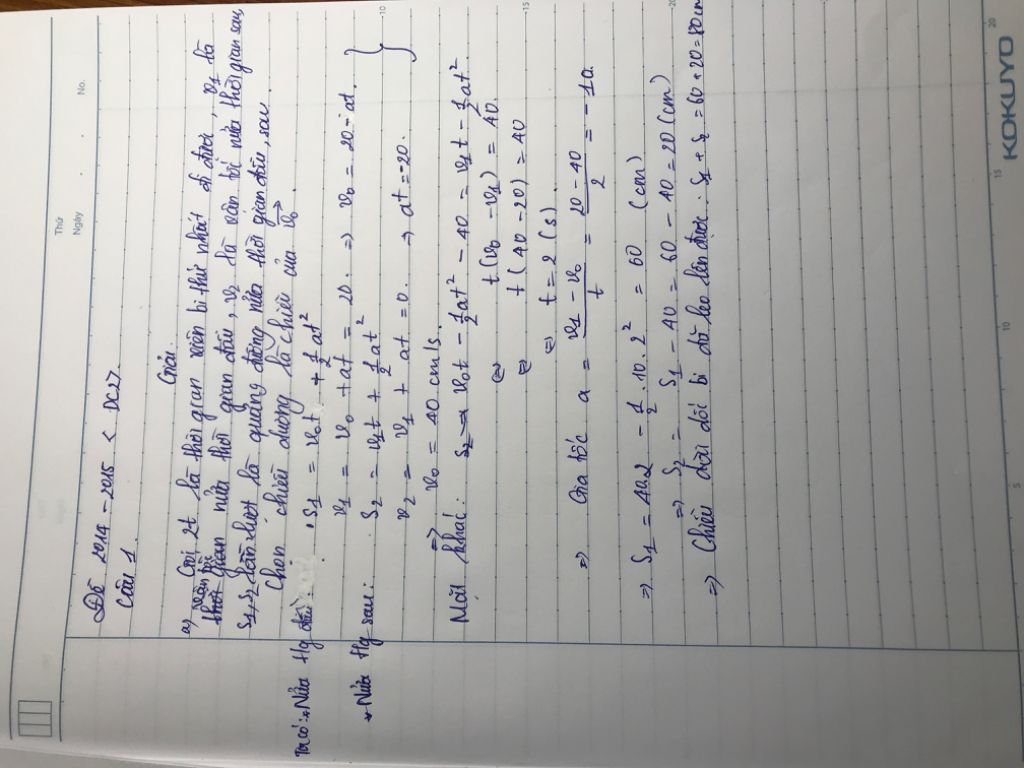 Thứ
Ngày
No.
Đề 2014 - 2015 < DC27.
Câu 1.
Giải.
a) Gọi 2t là thời gian viên bi thứ nhất đi được, v1 là
vận tốc thời gian nửa thời gian đầu, v2 là vận tốc nửa thời gian sau
S1, S2 lần lượt là quãng đường nửa thời gian đầu, sau.
Chọn chiều dương là chiều của v0.
Ta có: * Nửa tg đầu: S1 = v0t + 1/2 at²
v1 = v0 + at = 20. => v0 = 20 - at.
* Nửa tg sau: S2 = v1t + 1/2 at²
v2 = v1 + at = 0. => at = -20.
=> v0 = 40 cm/s.
Mặt khác: v0t - 1/2 at² - 40 = v1t - 1/2 at².
<=> t(v0 - v1) = 40.
<=> t(40 - 20) = 40
<=> t = 2 (s).
=> Gia tốc a = (v1 - v0)/t = (20 - 40)/2 = - 10.
=> S1 = 40.2 - 1/2 . 10 . 2² = 60 (cm)
=> S2 = S1 - 40 = 60 - 40 = 20 (cm)
=> Chiều dài dốc bi đã leo lên được: S1 + S2 = 60 + 20 = 80 cm
5
10
15
20
-10
-15
-20
KOKUYO